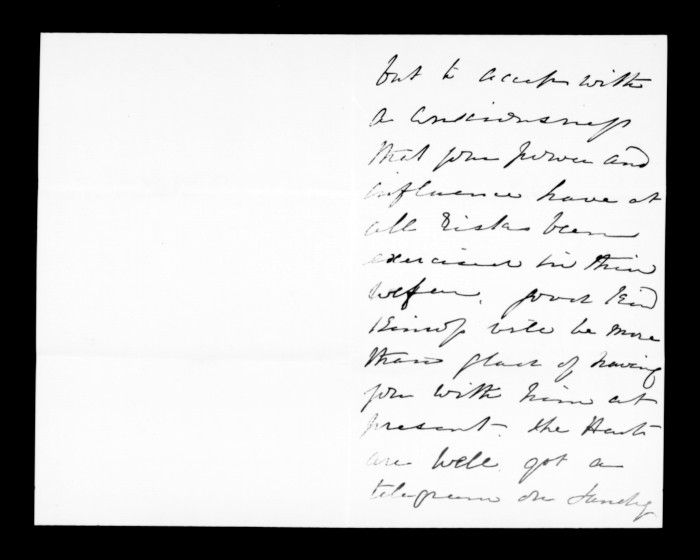 but to accept with
a consciousness
that your power and
influence have at
all risks been
exercised in their
welfare. good kind
Bishop will be more
than glad of having
you with him at
present. the Harts
are well got a
telegram on Sunday